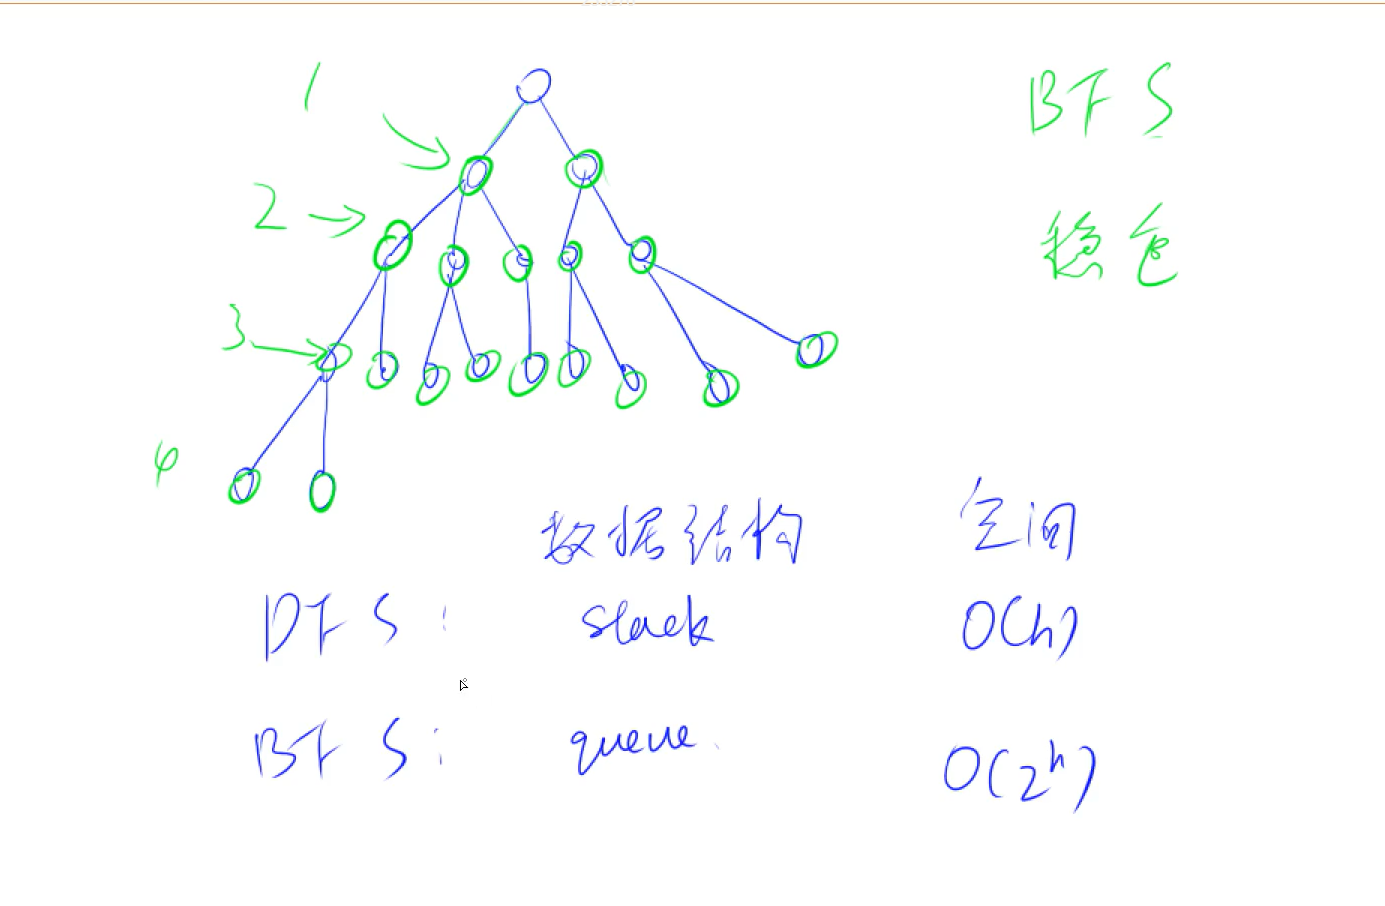 1
BFS
2
稳定
3
4
数据结构 空间
DFS: stack O(h)
BFS: queue. O(2^h)